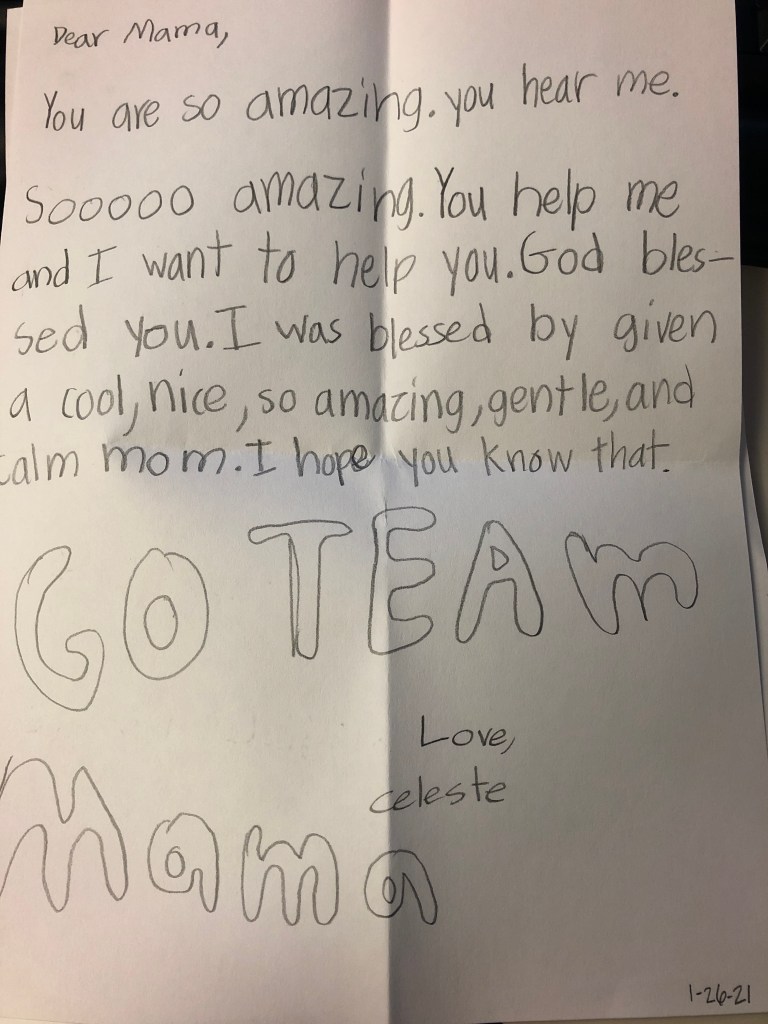 Dear Mama,
You are so amazing. you hear me.
Sooooo amazing. You help me
and I want to help you. God bles-
sed you. I was blessed by given
a cool, nice, so amazing, gentle, and
calm mom. I hope you know that.
GO TEAm
Love,
celeste
Mama
1-26-21